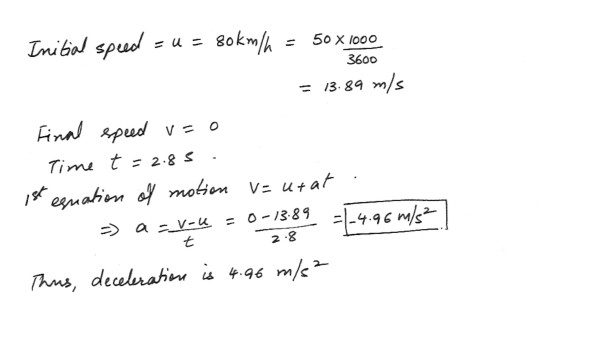 Initial speed = u = 80km/h = 50 × 1000 / 3600
= 13.89 m/s
Final speed v = 0
Time t = 2.8 s .
1st equation of motion v = u + at .
⇒ a = v-u / t = 0 - 13.89 / 2.8 = -4.96 m/s²
Thus, deceleration is 4.96 m/s²